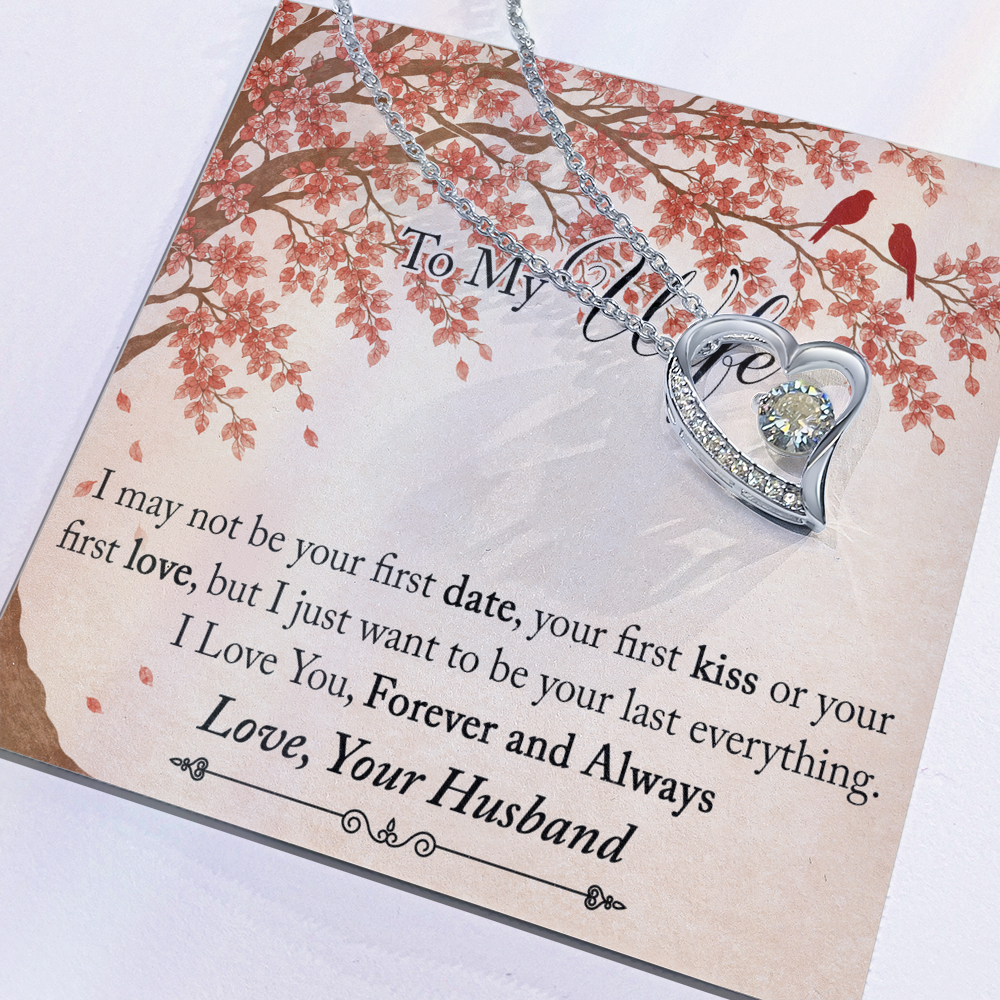 To My Wife
I may not be your first date, your first kiss or your
first love, but I just want to be your last everything.
I Love You, Forever and Always
Love, Your Husband